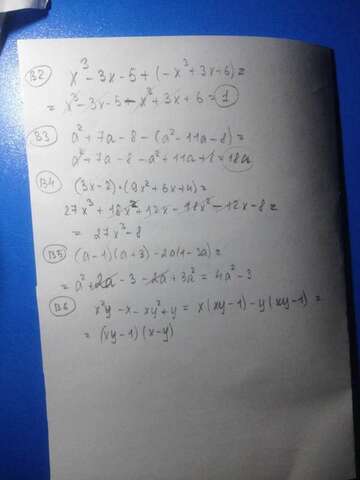 B2 x³ - 3x - 5 + (-x³ + 3x + 6) =
= x³ - 3x - 5 - x³ + 3x + 6 = 1
B3 a² + 7a - 8 - (a² - 11a - 8) =
a² + 7a - 8 - a² + 11a + 8 = 18a
B4 (3x - 2) · (9x² + 6x + 4) =
27x³ + 18x² + 12x - 18x² - 12x - 8 =
= 27x³ - 8
B5 (a - 1)(a + 3) - 2a(1 - 3a) =
= a² + 2a - 3 - 2a + 3a² = 4a² - 3
B6 x²y - x - xy² + y = x(xy - 1) - y(xy - 1) =
= (xy - 1)(x - y)